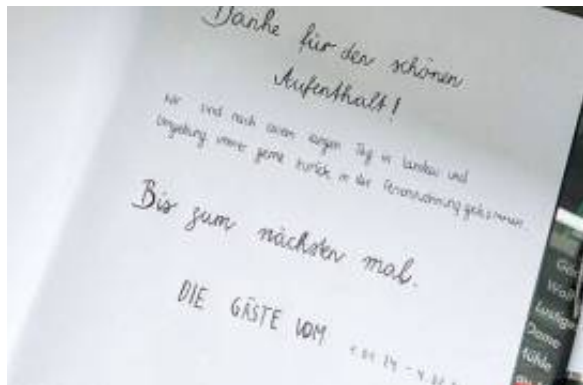 Danke für den schönen
Aufenthalt!
Wir sind nach einem langen Tag in Landau und
Umgebung immer gerne zurück in die Ferienwohnung gekommen.
Bis zum nächsten mal.
DIE GÄSTE VOM
lustige
Dame
Kühle